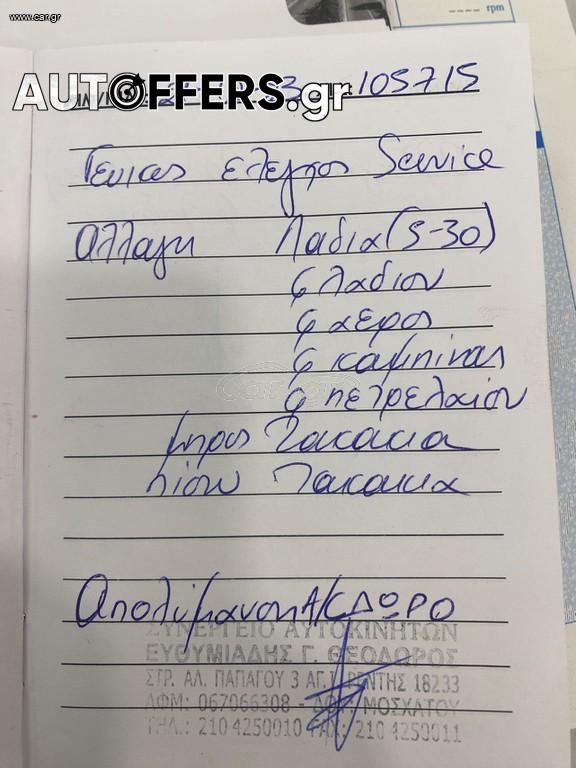 www.car.gr
rpm
AUTOFFERS.gr
105715
Γενικος ελεγχος Service
Αλλαγη Λαδια (5-30)
φ λαδιου
φ αερος
φ καμπινας
φ πετρελαιου
μπρος Τακακια
πισω Τακακια
Απολύμανση A/C ΔΩΡΟ
ΣΥΝΕΡΓΕΙΟ ΑΥΤΟΚΙΝΗΤΩΝ
ΕΥΘΥΜΙΑΔΗΣ Γ. ΘΕΟΔΩΡΟΣ
ΣΤΡ. ΑΛ. ΠΑΠΑΓΟΥ 3 ΑΓ. Ι. ΡΕΝΤΗΣ 18233
ΑΦΜ: 067066308 - ΔΟΥ: ΜΟΣΧΑΤΟΥ
ΤΗΛ.: 210 4250010 FAX.: 210 4250011